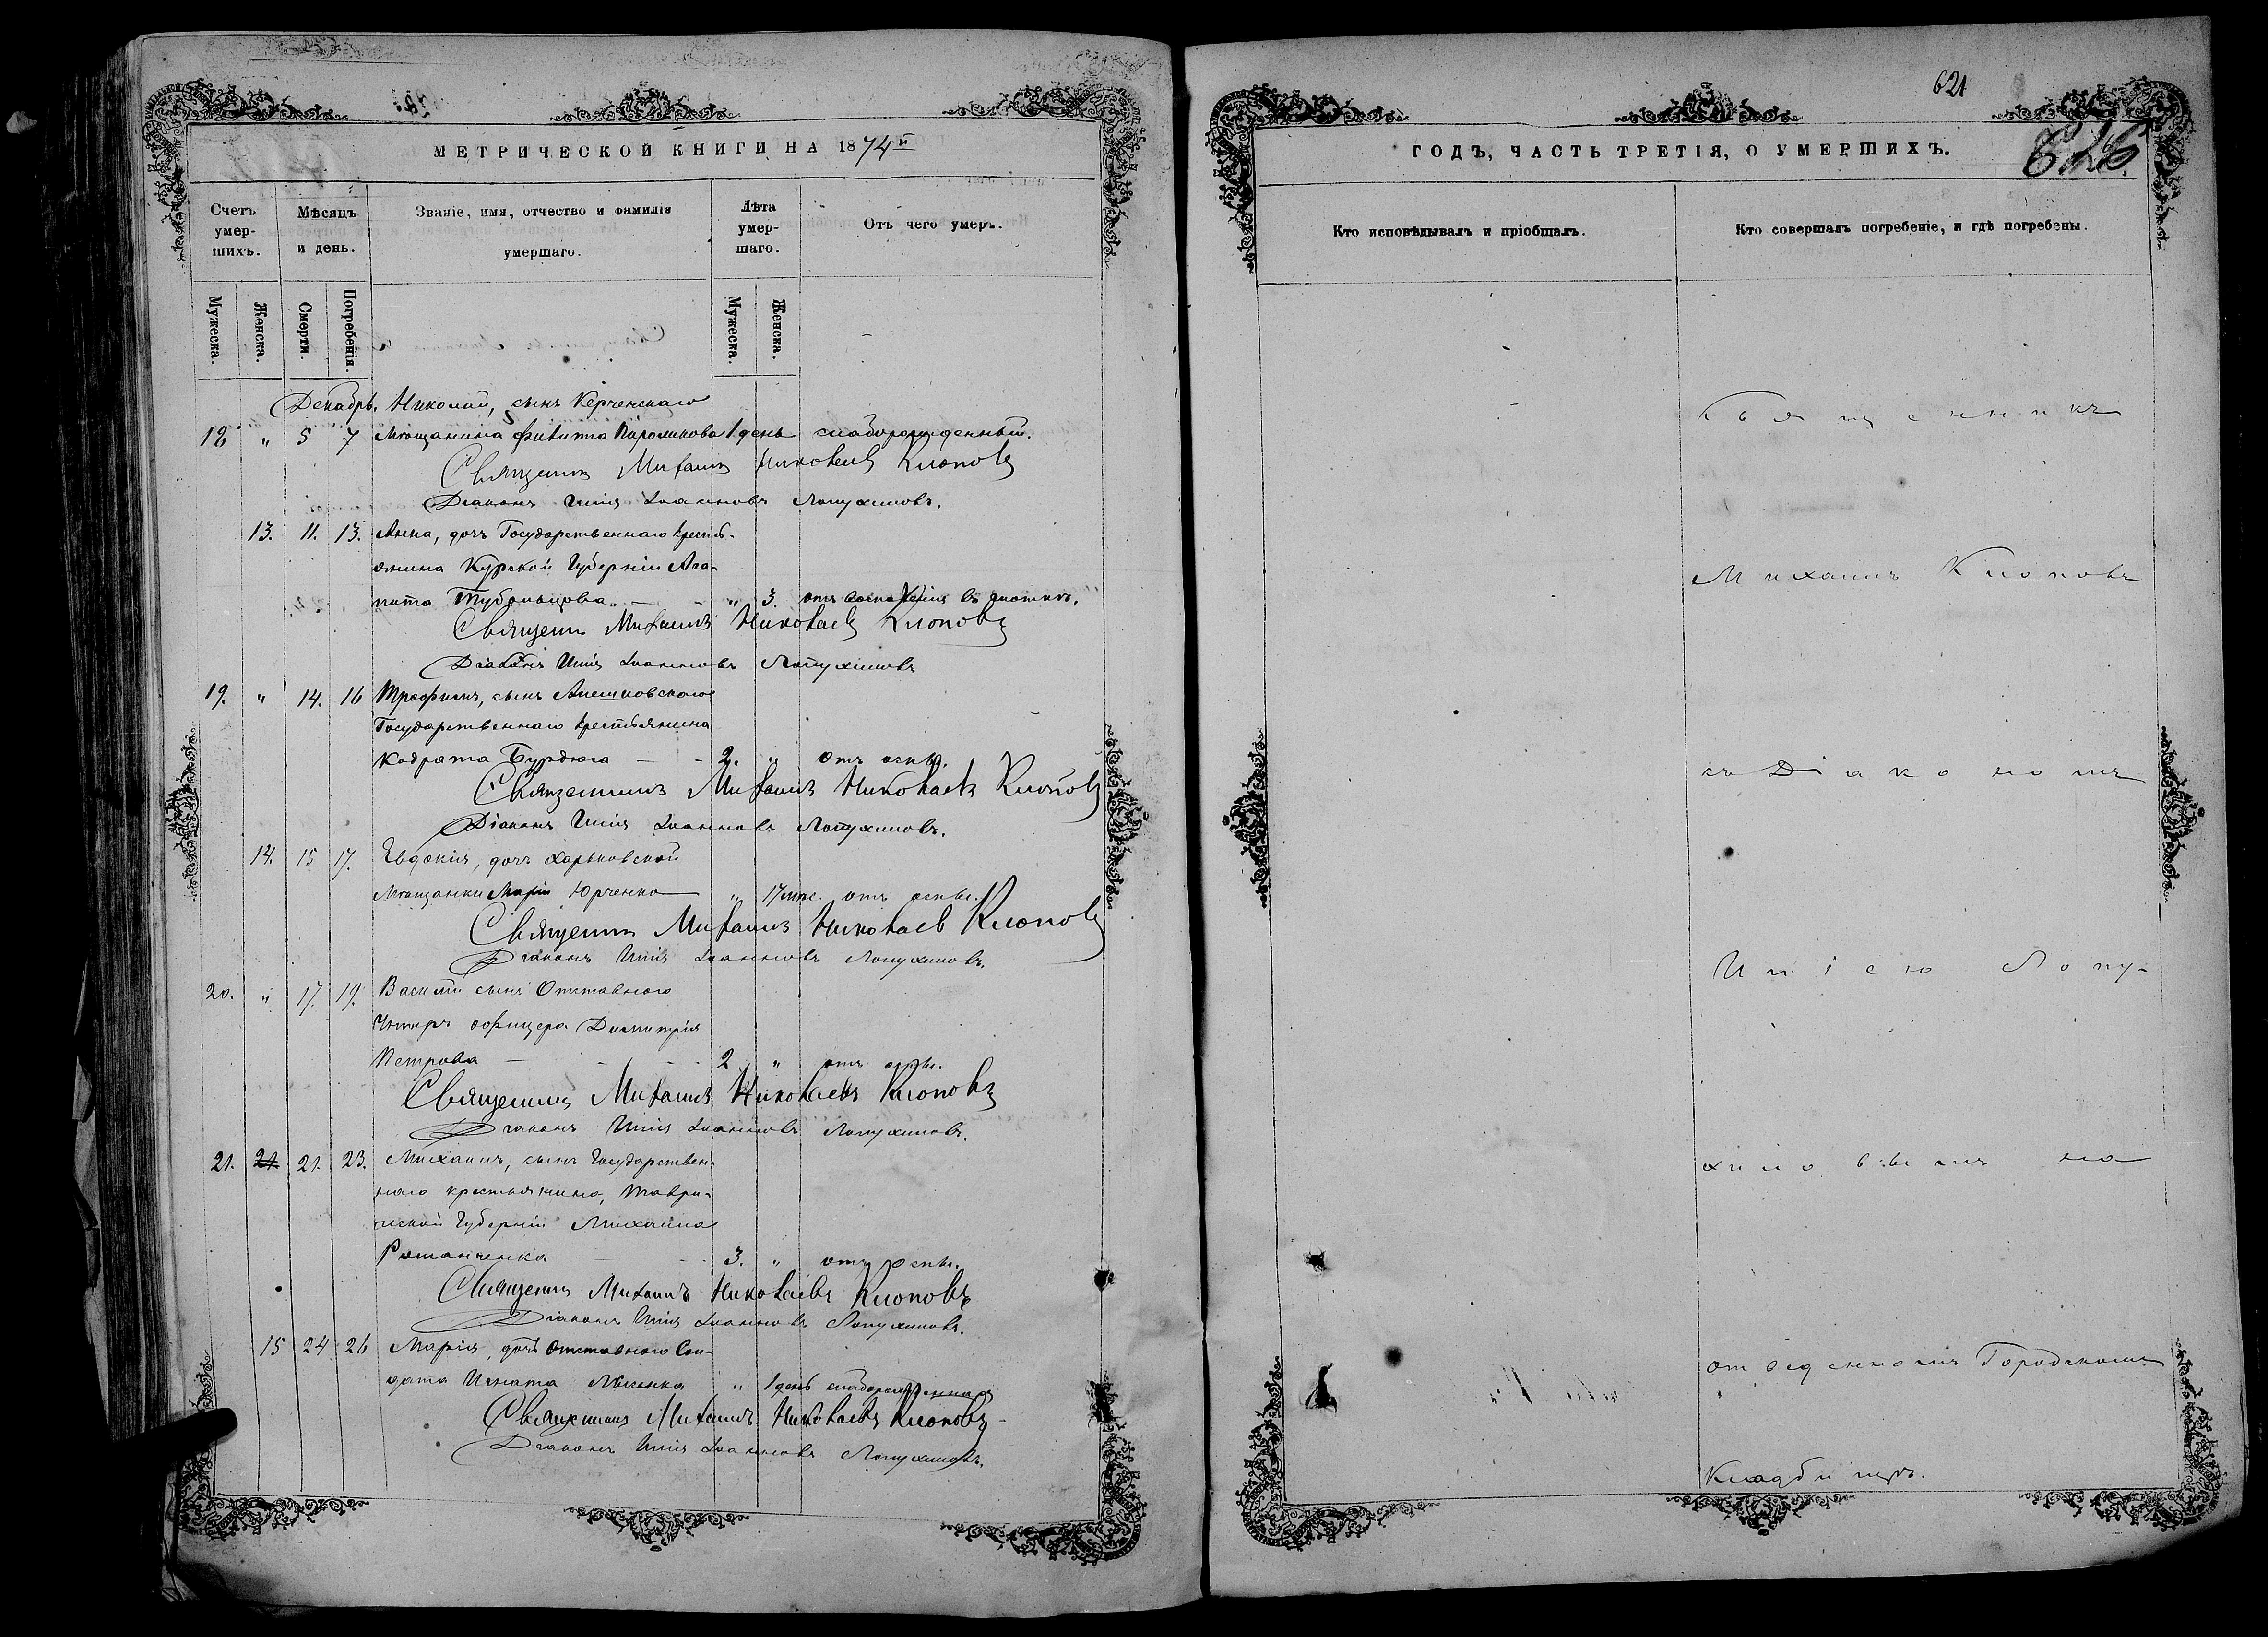 МЕТРИЧЕСКОЙ КНИГИ НА 1874й
Счетъ умер-шихъ.
Мѣсяцъ и день.
Званіе, имя, отчество и фамилія умершаго.
Лѣта умер-шаго.
Отъ чего умеръ.
Мужеска. Женска. Смерти. Погребенія. Мужеска. Женска.
Декабрь. Николай, сынъ Керченскаго
18 " 5 7 Мѣщанина 1 день слаборожденный.
Священникъ Михаилъ Николаевъ Клоповъ
Діаконъ Илія Іоанновъ Лопухиновъ.
13. 11. 13. Анна, дочь Государственнаго кресть-
янина Курской Губерніи Ага-
пита " 3. отъ воспаленія въ
Священ Михаилъ Николаевъ Клоповъ
Діаконъ Илія Іоанновъ Лопухиновъ
19. " 14. 16 Трофимъ, сынъ Алешковскаго
Государственнаго крестьянина
Кодрата Бурдюга 2. " отъ оспы.
Священникъ Михаилъ Николаевъ Клоповъ
Діаконъ Илія Іоанновъ Лопухиновъ.
14. 15 17. Евдокія, дочь Харьковской
Мѣщанки Маріи Юрченко " отъ оспы.
Священ Михаилъ Николаев Клоповъ
Діаконъ Илія Іоанновъ Лопухиновъ.
20. " 17. 19. Василій сынъ Отставного
Унтеръ офицера Димитрія
Петрова 2 " отъ оспы.
Священникъ Михаилъ Николаевъ Клоповъ
Діаконъ Илія Іоанновъ Лопухиновъ.
21. 21. 21. 23. Михаилъ, сынъ Государствен-
наго крестьянина, Таври-
ческой Губерніи Михаила
Романченка 3. " отъ оспы.
Священ Михаилъ Николаевъ Клоповъ
Діаконъ Илія Іоанновъ Лопухиновъ.
15 24 26 Марія, дочь отставного Сол-
дата Игната " 1 день слаборожденная
Священникъ Михаилъ Николаевъ Клоповъ
Діаконъ Илія Іоанновъ Лопухиновъ.
621
ГОДЪ, ЧАСТЬ ТРЕТІЯ, О УМЕРШИХЪ.
Кто исповѣдывалъ и пріобщалъ.
Кто совершалъ погребеніе, и гдѣ погребены.
Священникъ
Михаилъ Клоповъ
съ Діакономъ
Иліею Лопу-
хиновымъ на
отведенномъ Городскомъ
Кладбищѣ.